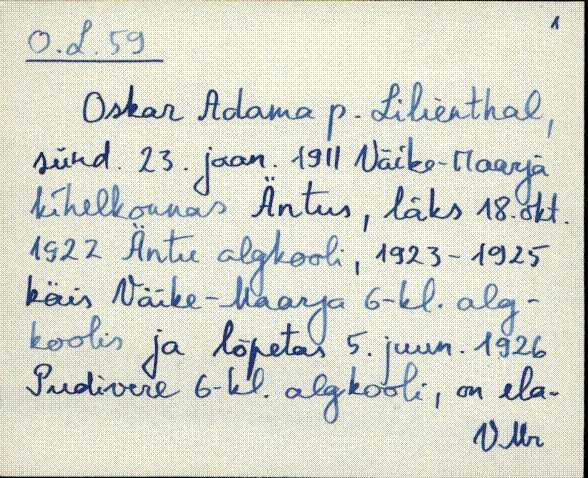 1
O.L. 59
Oskar Adama p. Lilienthal,
sünd. 23. jaan. 1911 Väike-Maarja
kihelkonnas Äntus, läks 18. okt.
1922 Äntu algkooli, 1923-1925
käis Väike-Maarja 6-kl. alg-
koolis ja lõpetas 5. juun. 1926
Pudivere 6-kl. algkooli, on ela-
VMr